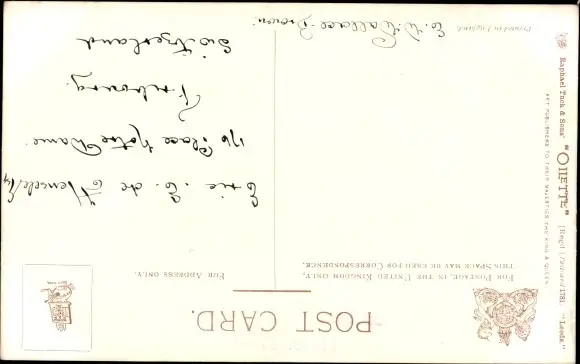 POST CARD.
FOR POSTAGE IN THE UNITED KINGDOM ONLY,
THIS SPACE MAY BE USED FOR CORRESPONDENCE.
FOR ADDRESS ONLY.
Eric. E. de
176 Place Notre Dame
Fribourg
Switzerland
E. W. Wallace-Brown.
Raphael Tuck & Sons' "OILETTE" [Regd.] Postcard 1781. "Leeds."
ART PUBLISHERS TO THEIR MAJESTIES THE KING & QUEEN.
Printed in England.